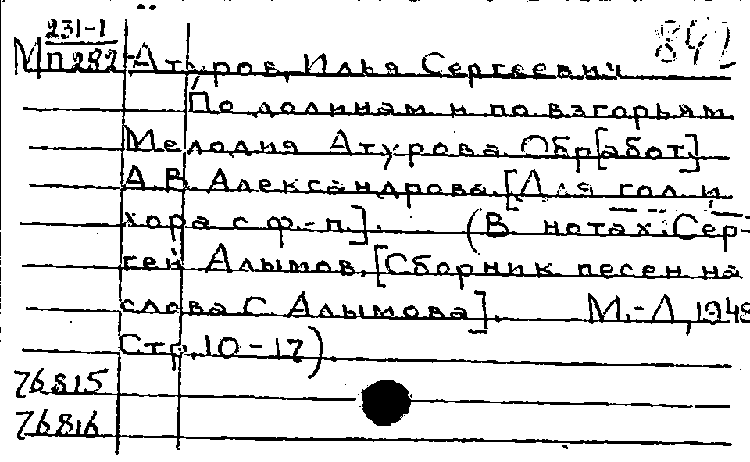 231-1
М П282 Атуров, Илья Сергеевич 842
По долинам и по взгорьям
Мелодия Атурова Обр[абот]
А.В. Александрова. [Для гол. и
хора с ф.-п.]. (В нотах: Сер-
гей Алымов. [Сборник песен на
слова С. Алымова]. М.-Л, 1948
Стр. 10-17).
76815
76816